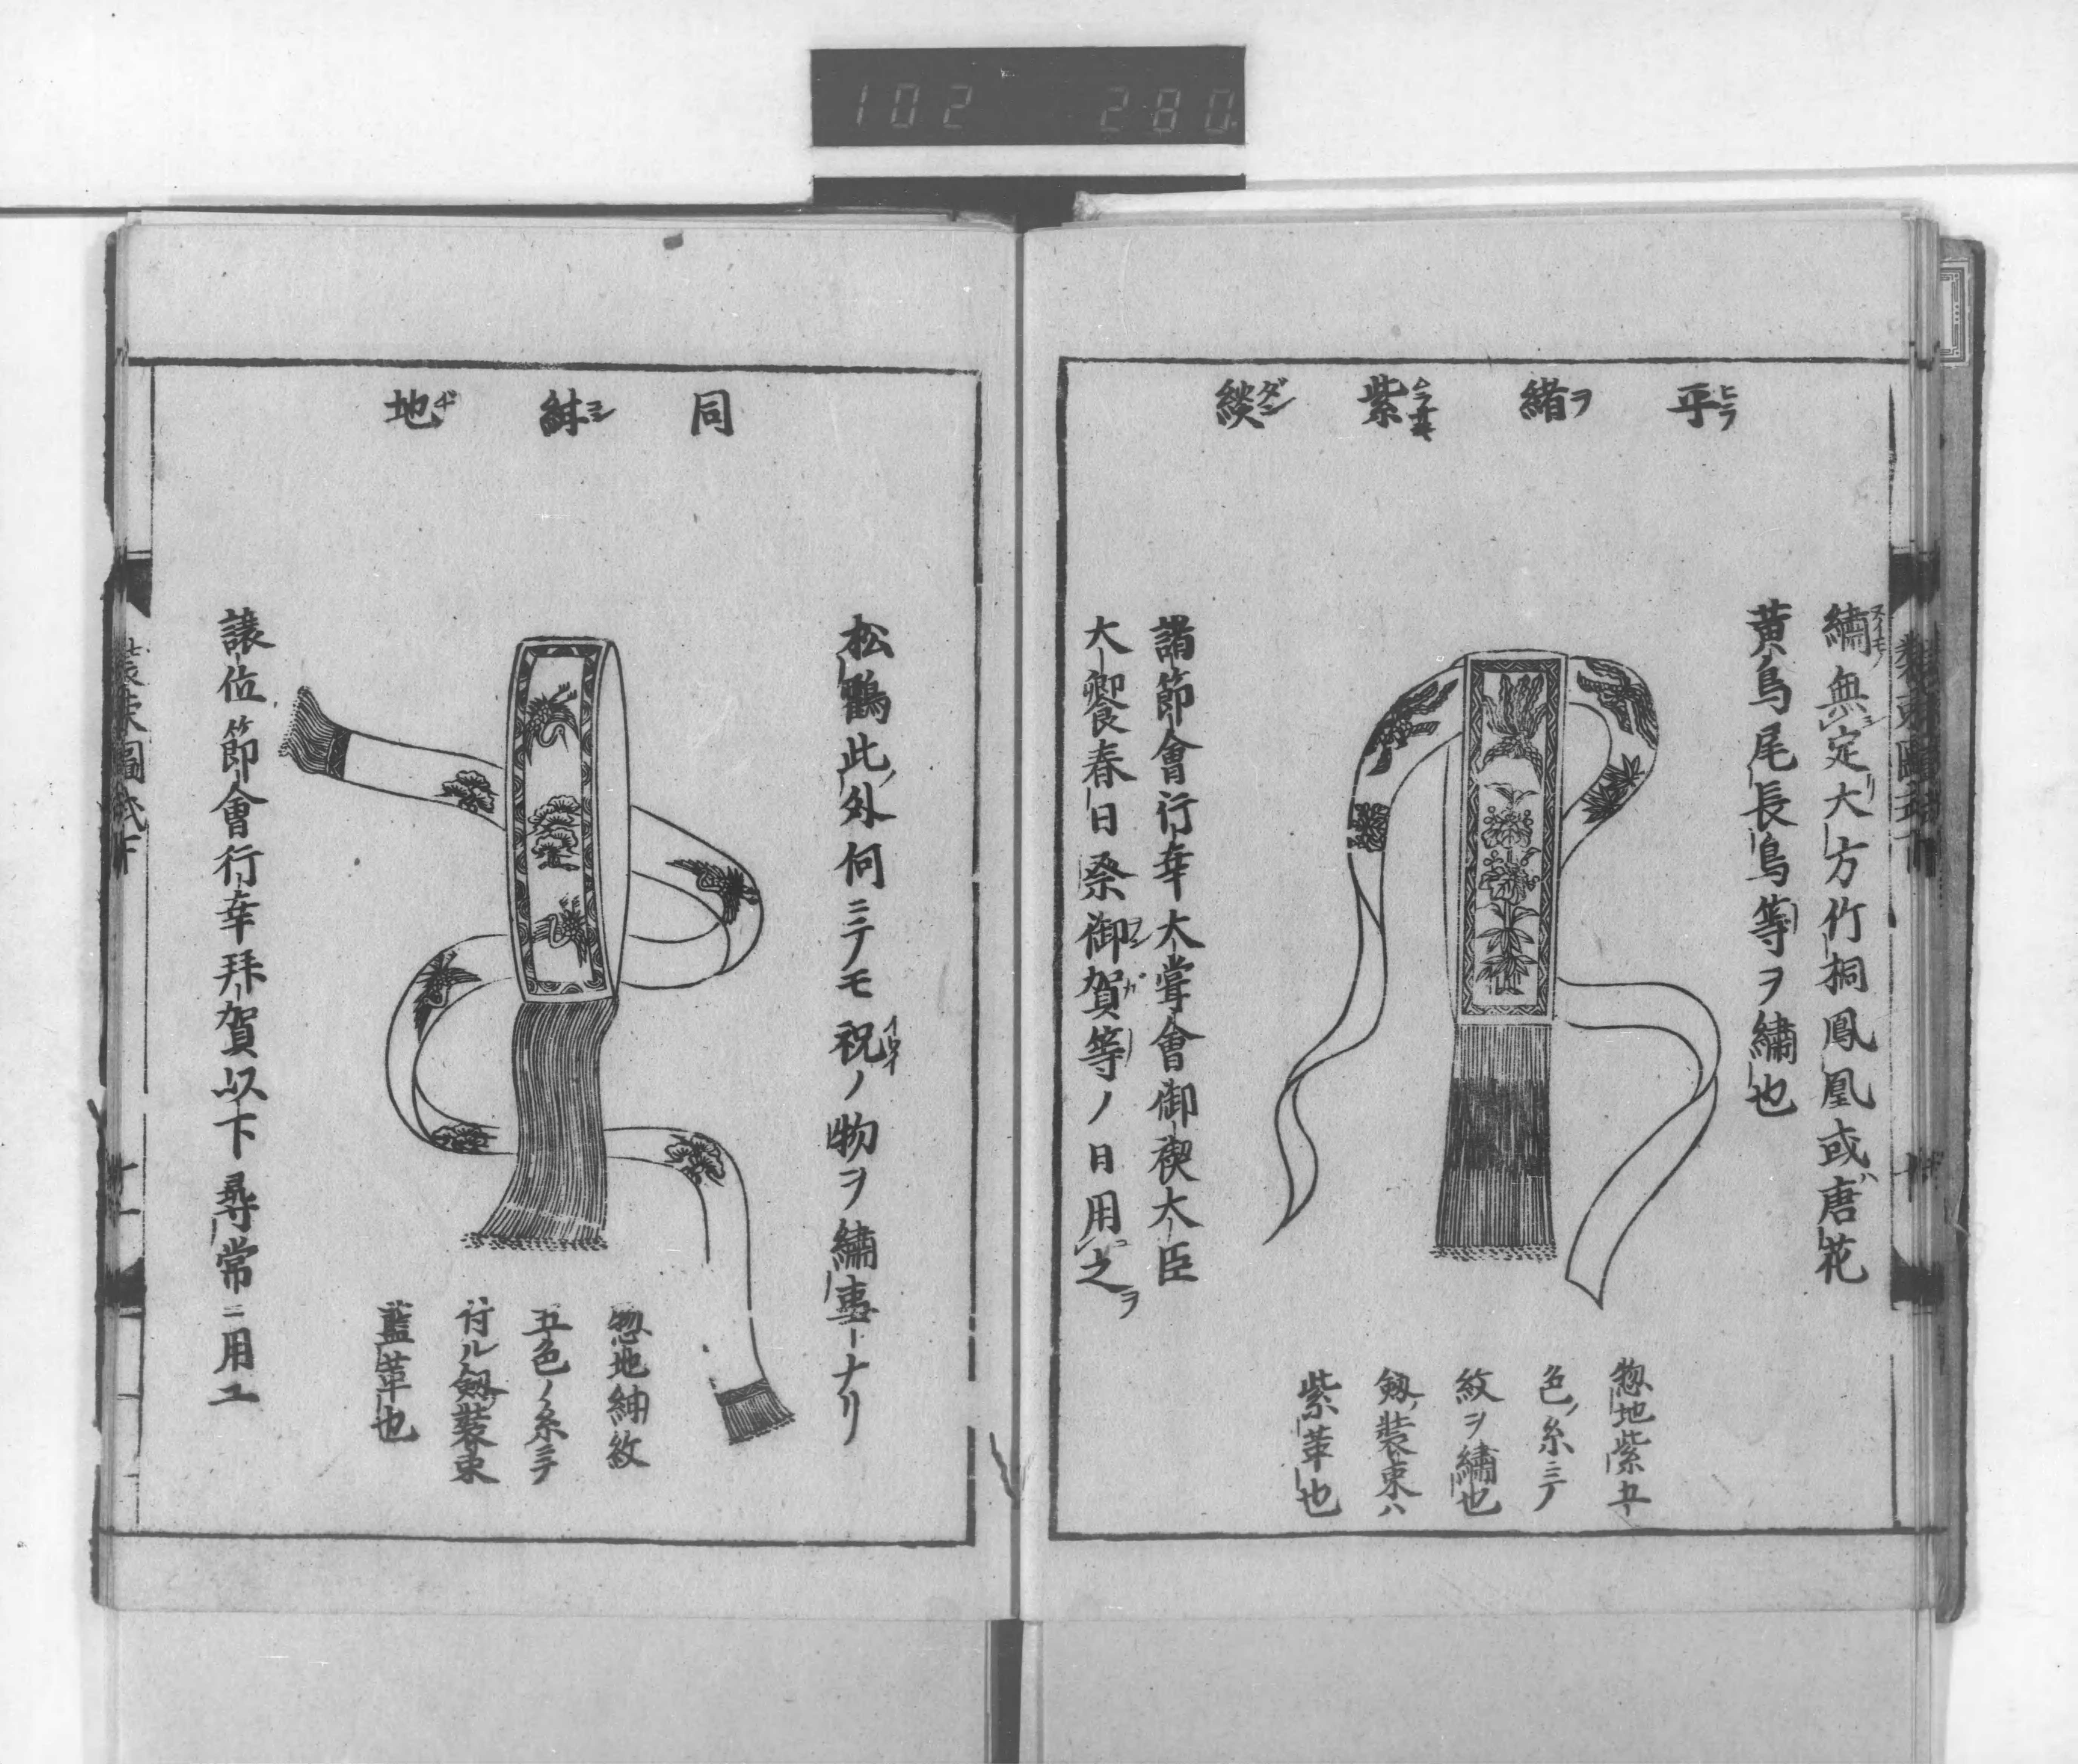 102 280
平ヒラ 緒ヲ 紫ムラサキ 緂ダン
繡ヌイモノ無定大方竹桐鳳凰或ハ唐花
黄鳥尾長鳥等ヲ繡也
惣地紫五
色ノ糸ニテ
紋ヲ繡也
剱ノ装束ハ
紫革也
諸節會行幸大嘗會御禊大臣
大饗春日祭御賀ガ等ノ日用之ヲ
同 紺コン 地ヂ
松鶴此外何ニテモ祝イワ井ノ物ヲ繡事ナリ
惣地紺紋
五色ノ糸ニテ
付ル剱装束
藍革也
譲位節會行幸拜賀以下尋常ニ用エ
装束圖式下